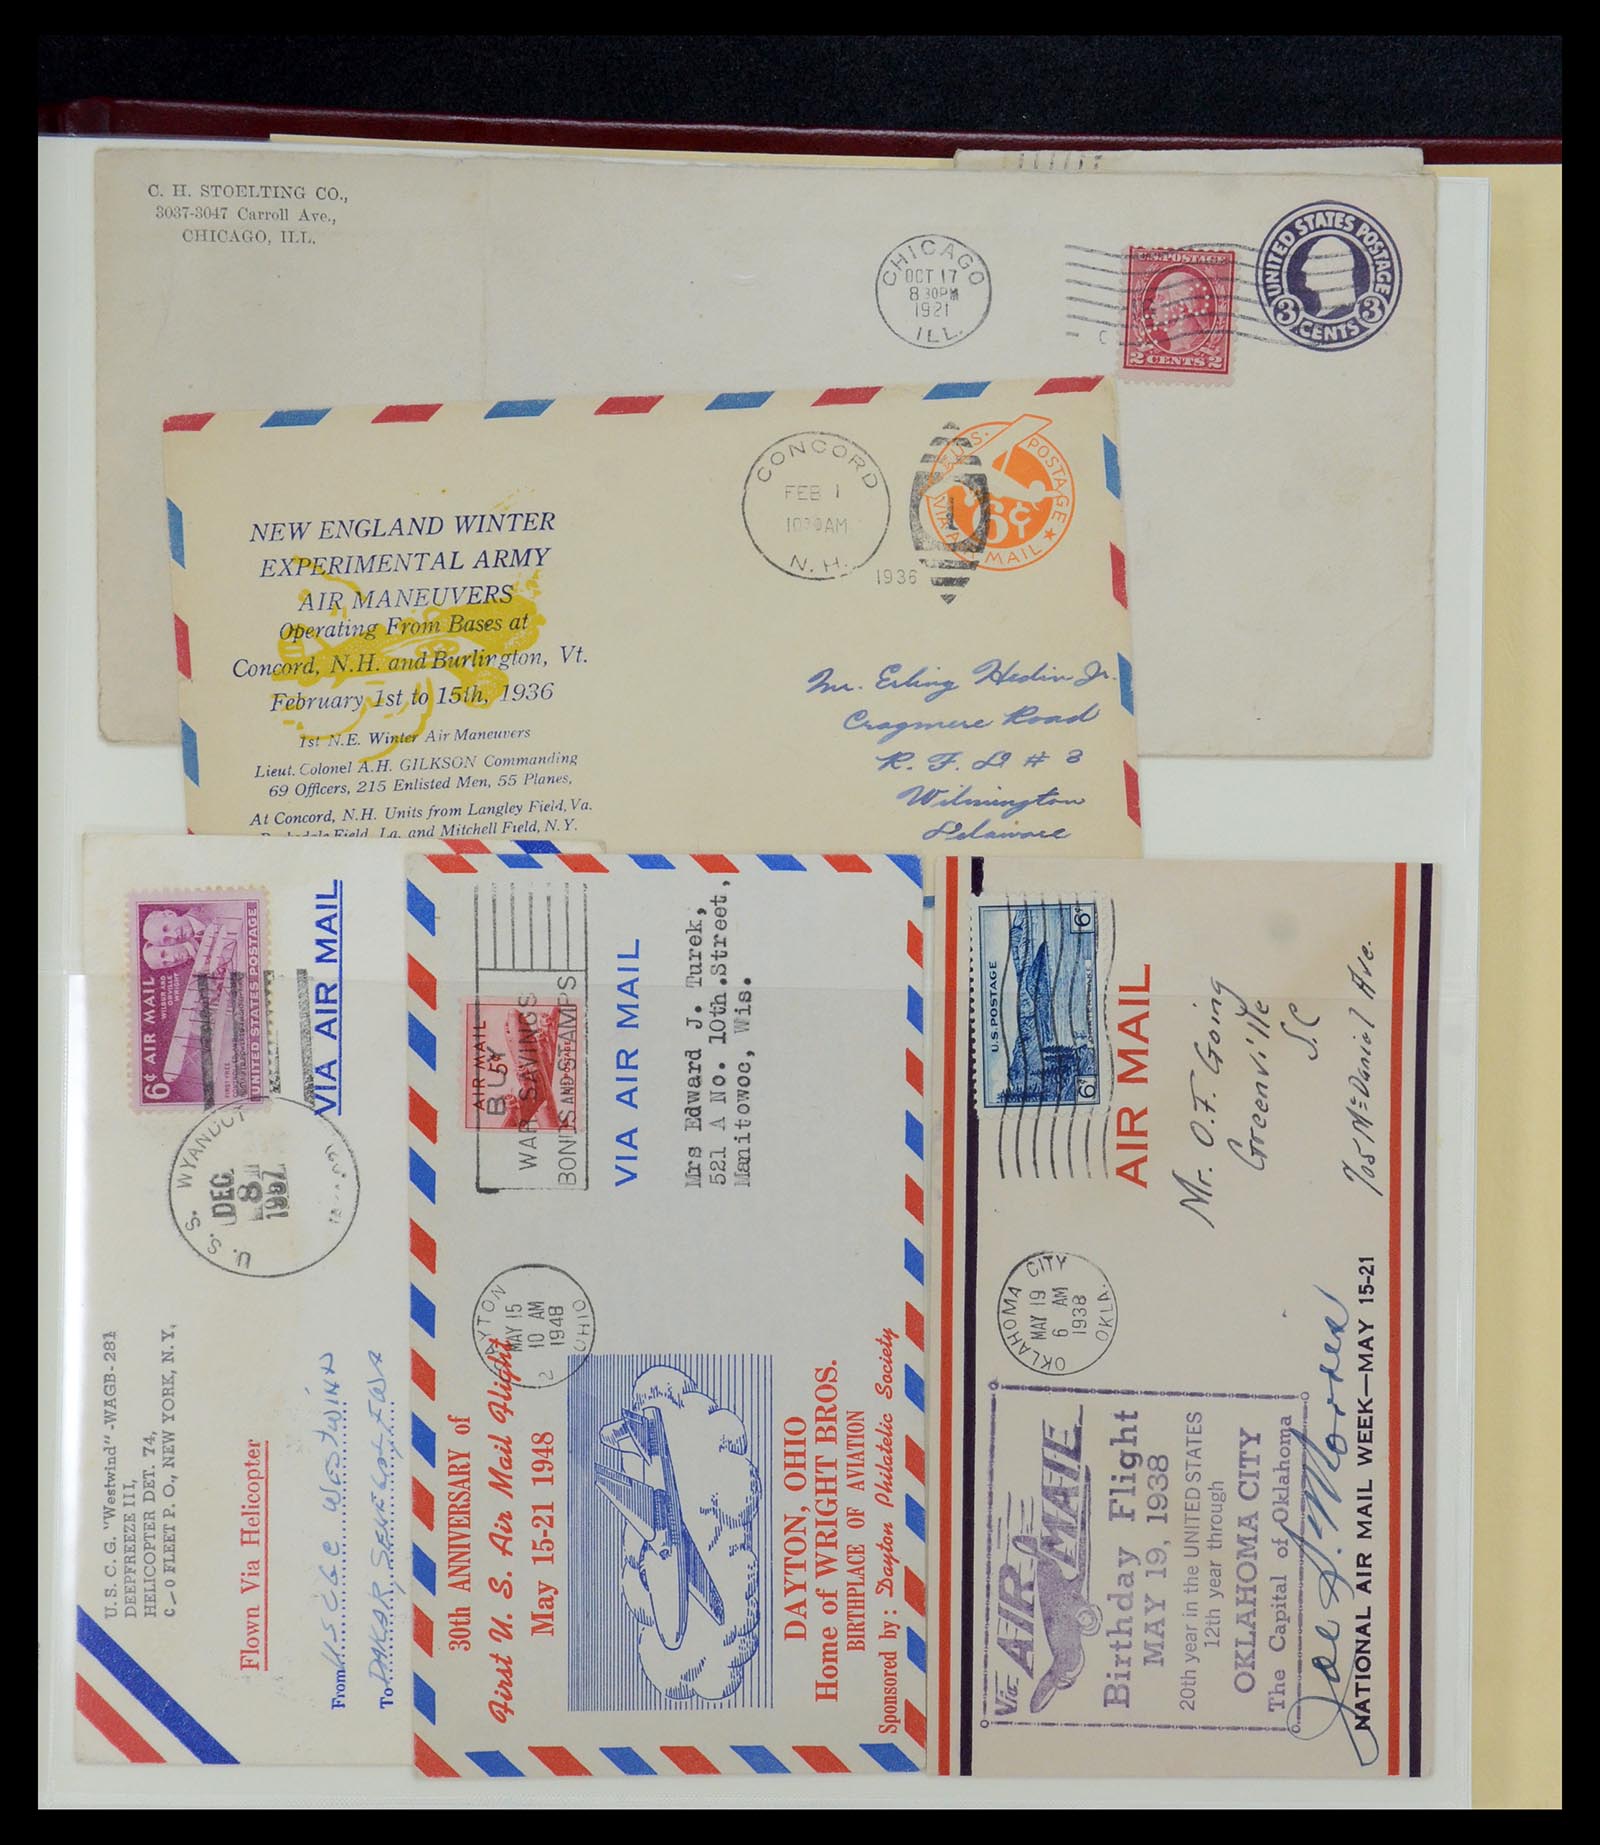 C. H. STOELTING CO.,
3037-3047 Carroll Ave.,
CHICAGO, ILL.
CHICAGO
OCT 17
8 30PM
1921
ILL.
U.S. POSTAGE
2 CENTS 2
UNITED STATES POSTAGE
3 CENTS 3
NEW ENGLAND WINTER
EXPERIMENTAL ARMY
AIR MANEUVERS
Operating From Bases at
Concord, N.H. and Burlington, Vt.
February 1st to 15th, 1936
1st N.E. Winter Air Maneuvers
Lieut. Colonel A.H. GILKSON Commanding
69 Officers, 215 Enlisted Men, 55 Planes,
At Concord, N.H. Units from Langley Field, Va.
Field, La. and Mitchell Field, N.Y.
CONCORD
FEB 1
AM
N.H.
1936
1
U.S. POSTAGE
6¢
VIA AIR MAIL
Mr. Erling Hedin Jr.
Cragmere Road
R. F. D # 3
Wilmington
Delaware
6¢ AIR MAIL
WILBUR AND
ORVILLE
WRIGHT
UNITED STATES POSTAGE
VIA AIR MAIL
U. S. S. WYANDOT
DEC
8
1957
U. S. C. G. "Westwind" -WAGB- 281
DEEPFREEZE III,
HELICOPTER DET. 74,
C-O FLEET P. O., NEW YORK, N.Y.
Flown Via Helicopter
From USCGC WESTWIND
To DAKAR SENEGAL FWA
AIR MAIL
5¢
BUY
WAR SAVINGS
BONDS AND STAMPS
VIA AIR MAIL
Mrs Edward J. Turek,
521 A No. 10th.Street,
Manitowoc, Wis.
DAYTON
MAY 15
10 AM
1948
OHIO
2
30th ANNIVERSARY of
First U. S. Air Mail Flight
May 15-21 1948
DAYTON, OHIO
Home of WRIGHT BROS.
BIRTHPLACE OF AVIATION
Sponsored by: Dayton Philatelic Society
U.S. POSTAGE
6¢
6¢
AIR MAIL
Mr. O.F. Going
Greenville
S.C
705 McDaniel Ave.
OKLAHOMA CITY
MAY 19
6 AM
1938
OKLA.
Via AIR MAIL
Birthday Flight
MAY 19, 1938
20th year in the UNITED STATES
12th year through
OKLAHOMA CITY
The Capital of Oklahoma
Joe S. Morris
NATIONAL AIR MAIL WEEK—MAY 15-21